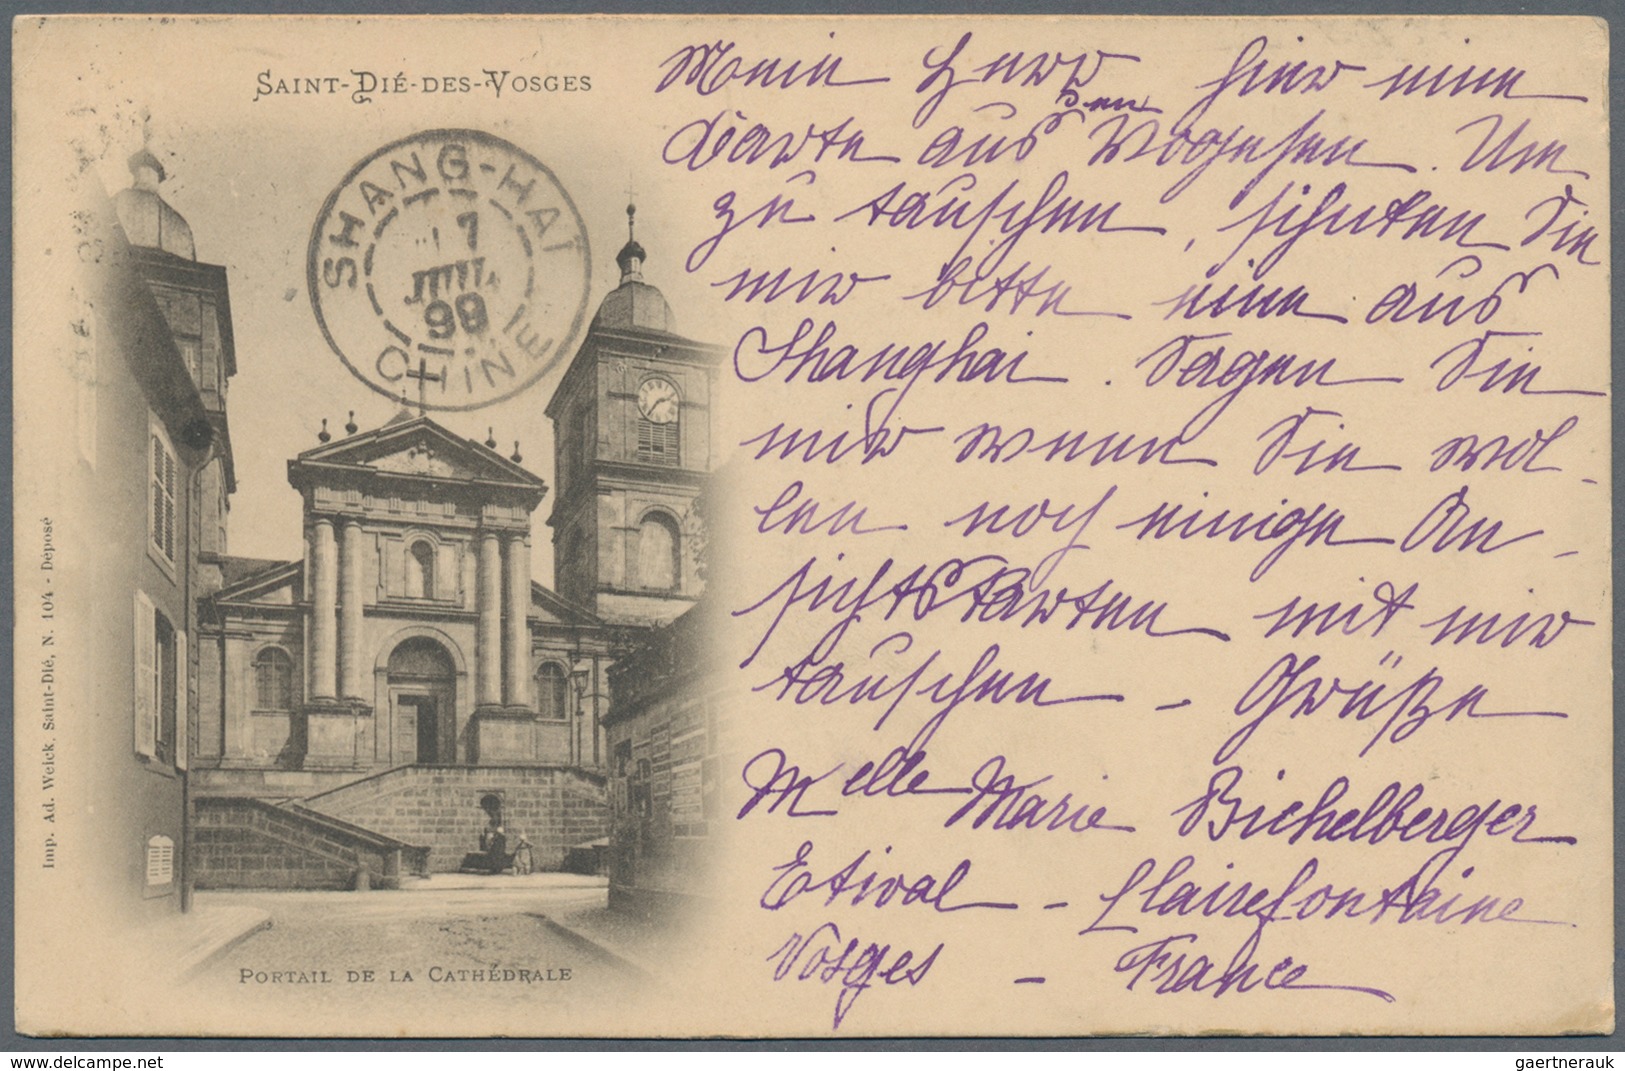 SAINT-DIÉ-DES-VOSGES
SHANG-HAÏ
7
JUIL.
99
CHINE
Mein Herr hier eine
Carte aus den Vogesen. Um
zu tauschen, schicken Sie
mir bitte eine aus
Shanghai. Sagen Sie
mir wenn Sie wol-
len noch einige An-
sichtskarten mit mir
tauschen - Grüße
Melle Marie Bichelberger
Etival - Clairefontaine
Vosges - France
PORTAIL DE LA CATHÉDRALE
Imp. Ad. Weick, Saint-Dié, N. 104 - Déposé
www.delcampe.net
gaertnerauk